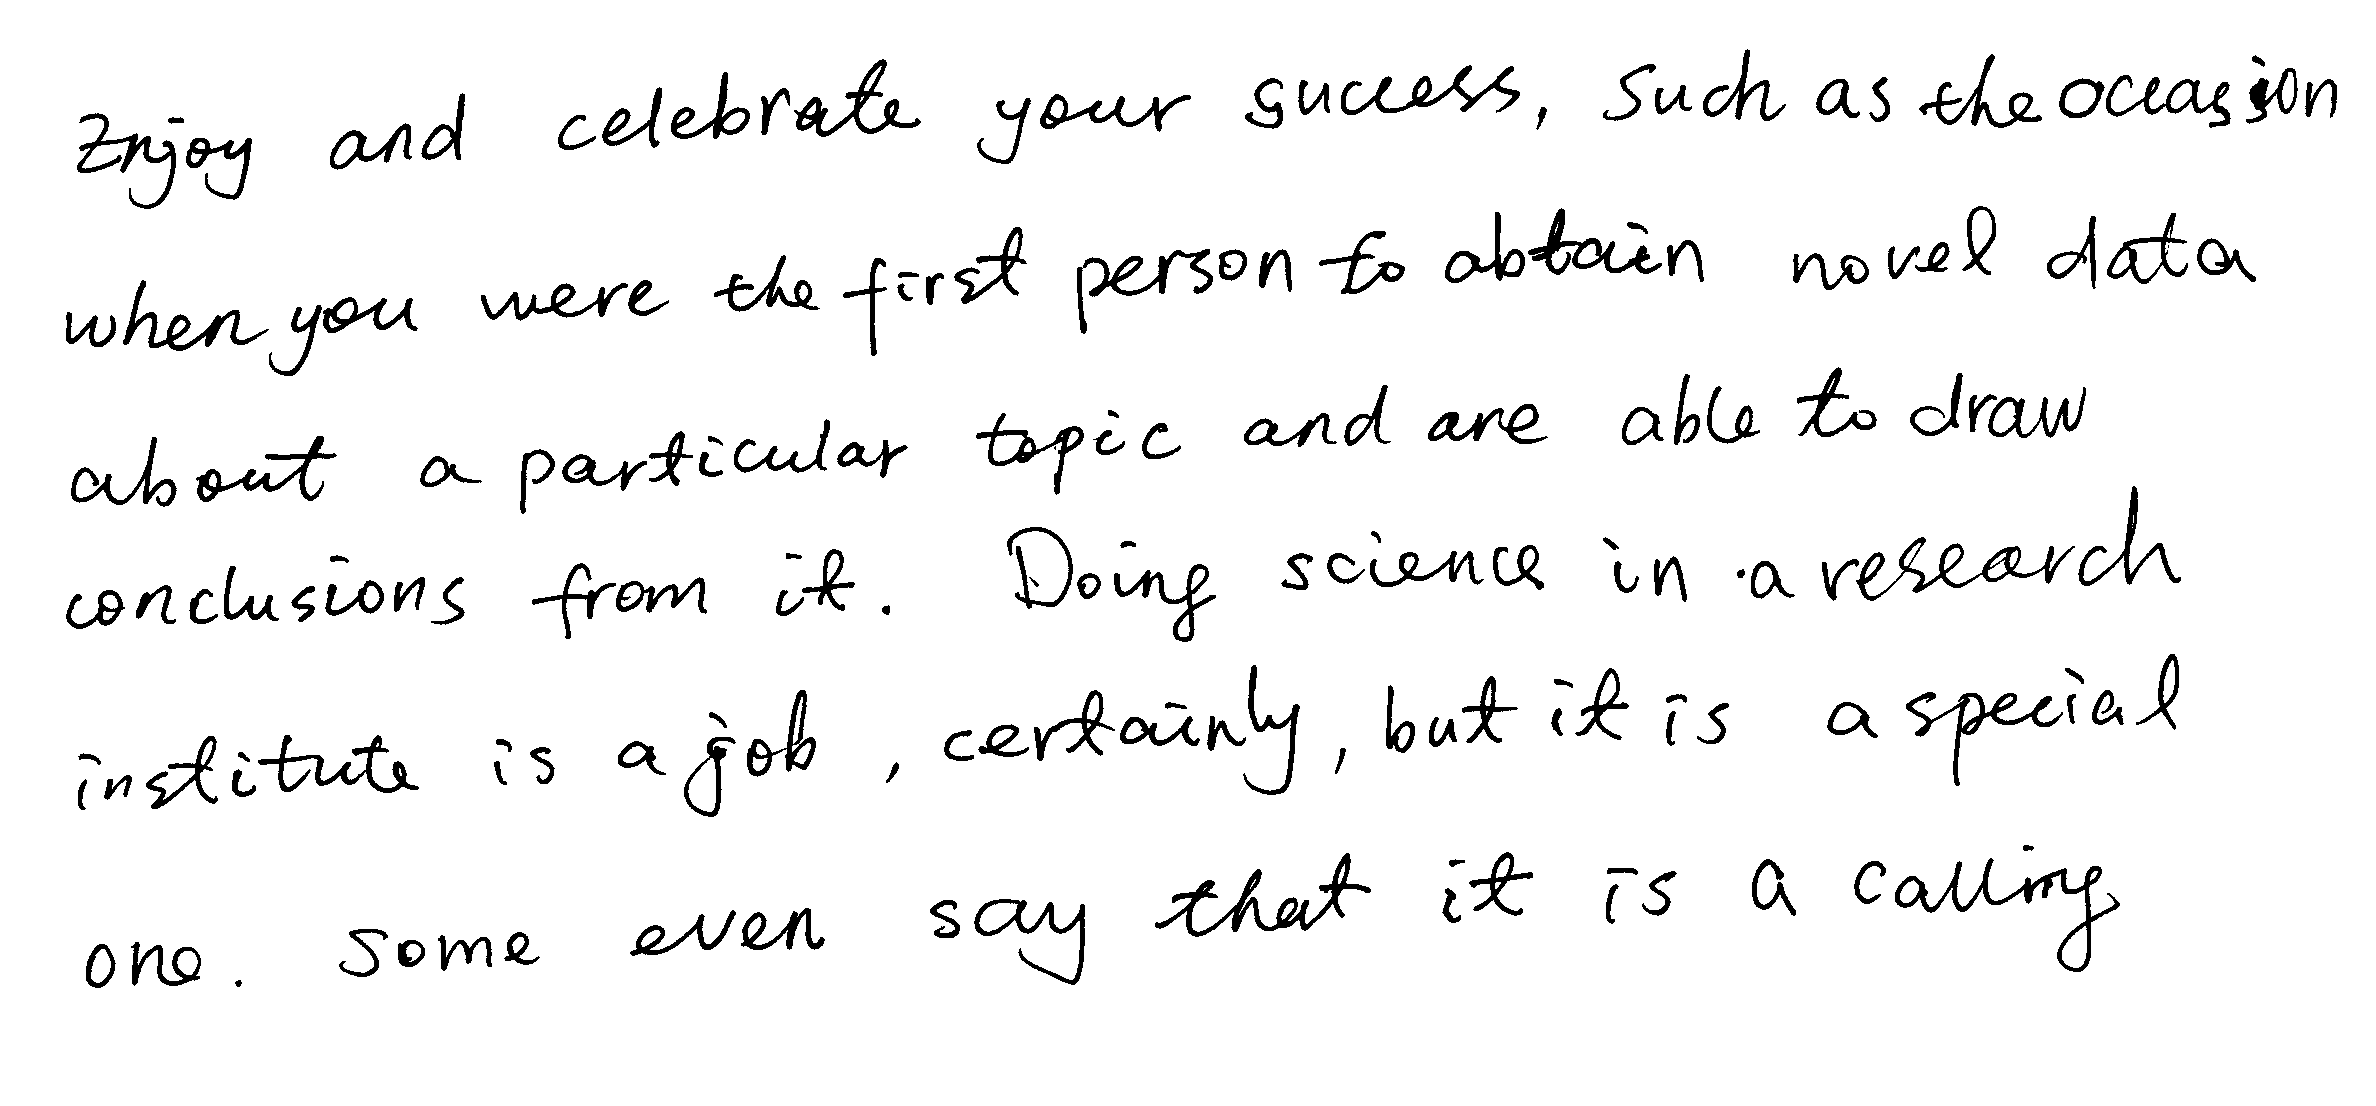 Enjoy and celebrate your success, such as the occasion
when you were the first person to obtain novel data
about a particular topic and are able to draw
conclusions from it. Doing science in a research
institute is a job, certainly, but it is a special
one. Some even say that it is a calling